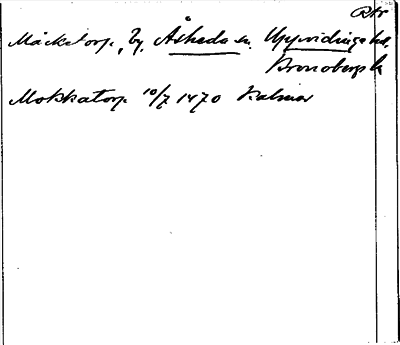 Rtr
Mäcketorp, by, Åsheda sn. Uppvidinge hd,
Kronobergs l.
Mokkatorp 10/7 1470 Kalmar